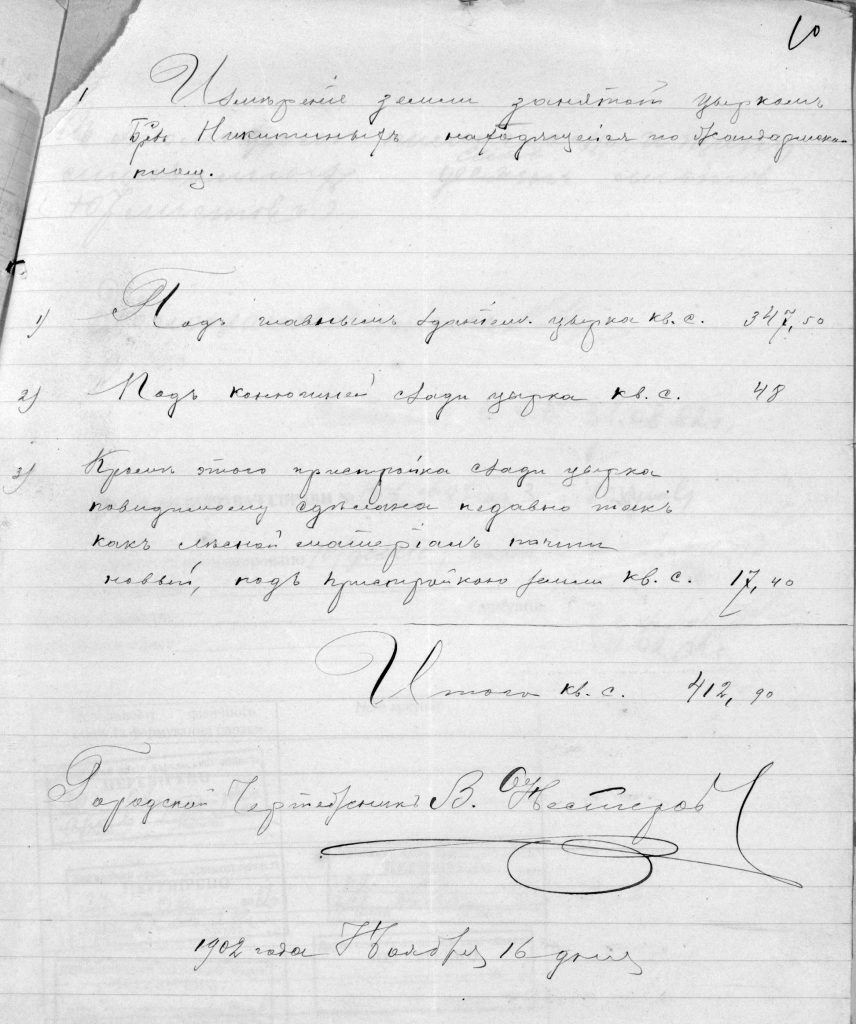 10
Измѣреніе земли занятой циркомъ
Бр. Никитиныхъ находящейся по Жандармско
площ.
1) Подъ главнымъ зданіем. цирка кв. с. 347,50
2) Подъ конюшней сзади цирка кв. с. 48
3) Кромѣ этого пристройка сзади цирка
повидимому сдѣлана недавно такъ
какъ лѣсной матеріалъ почти
новый, подъ пристройкою земли кв. с. 17,40
Итого кв. с. 412,90
Городской Чертежникъ В. Нестеровъ
1902 года Ноября 16 дня